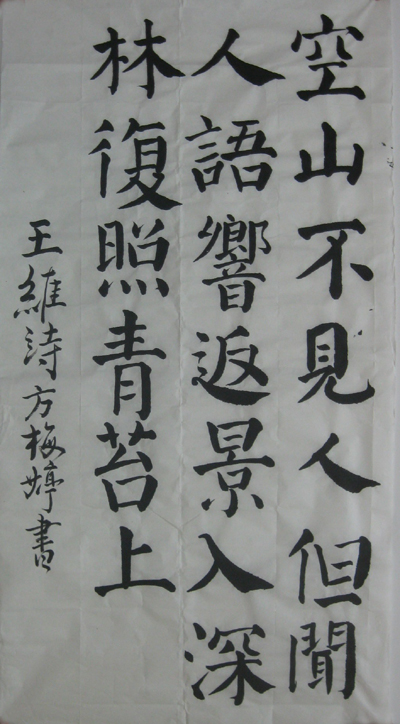 空山不見人但聞
人語響返景入深
林復照青苔上
王維詩方梅婷書